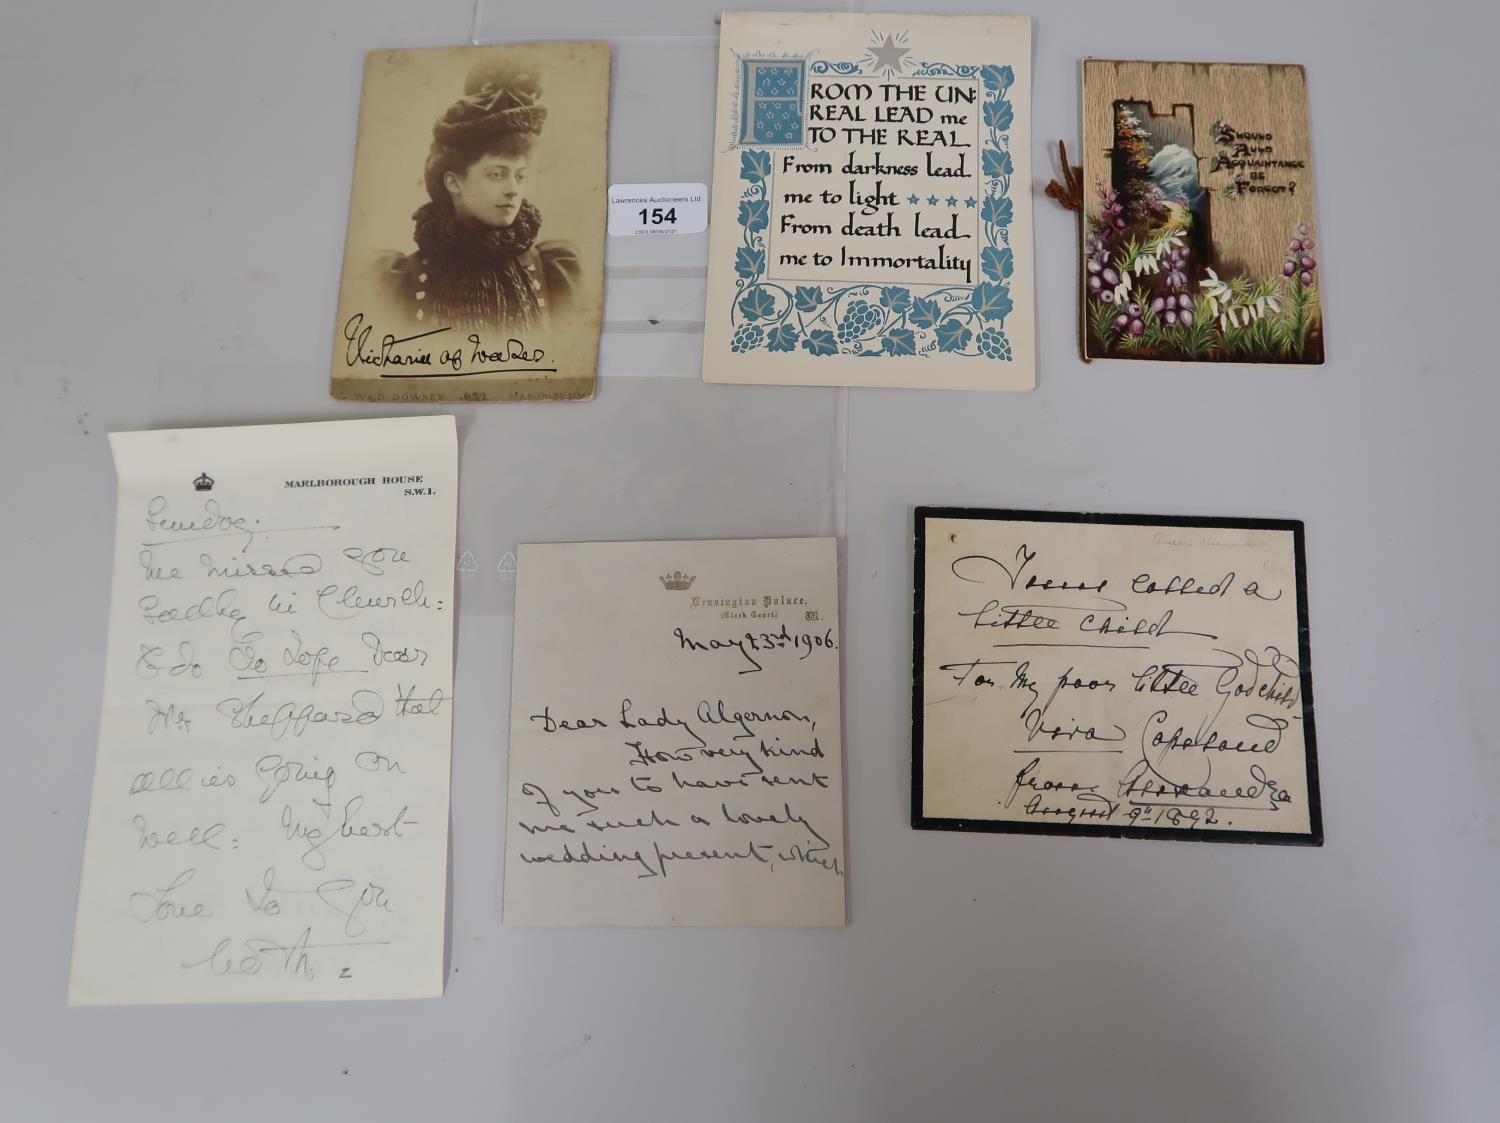 Victoria of Wales.
W. & D. DOWNEY
Lawrences Auctioneers Ltd
154
FROM THE UN:
REAL LEAD me
TO THE REAL
From darkness lead
me to light
From death lead
me to Immortality
Should
Auld
Acquaintance
be
Forgot?
MARLBOROUGH HOUSE
S.W.1.
Sunday.
We missed you
Sadly in Church:
I do so hope dear
Mr Sheppard that
all is going on
well: My best
Love to you
Kensington Palace.
(Clock Court) W.
May 23rd 1906.
Dear Lady Algernon,
How very kind
of you to have sent
me such a lovely
wedding present, which
Jesus called a
little child
For my poor little Godchild
Vera Copeland
from Alexandra
August 9th 1892.